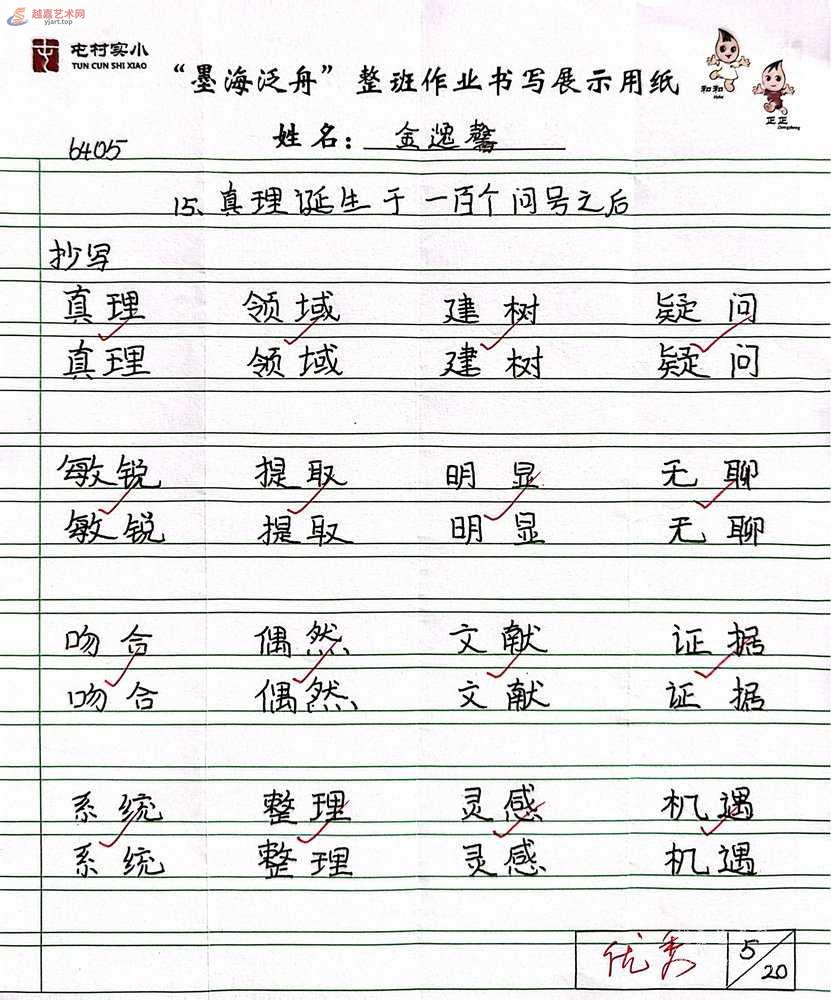 越嘉艺术网
yjart.top
屯村实小
TUN CUN SHI XIAO
“墨海泛舟”整班作业书写展示用纸
和和
Hehe
正正
Zhengzheng
6405
姓名：金逸馨
15、真理诞生于一百个问号之后
抄写
真理 领域 建树 疑问
真理 领域 建树 疑问
敏锐 提取 明显 无聊
敏锐 提取 明显 无聊
吻合 偶然 文献 证据
吻合 偶然 文献 证据
系统 整理 灵感 机遇
系统 整理 灵感 机遇
优秀 5/20